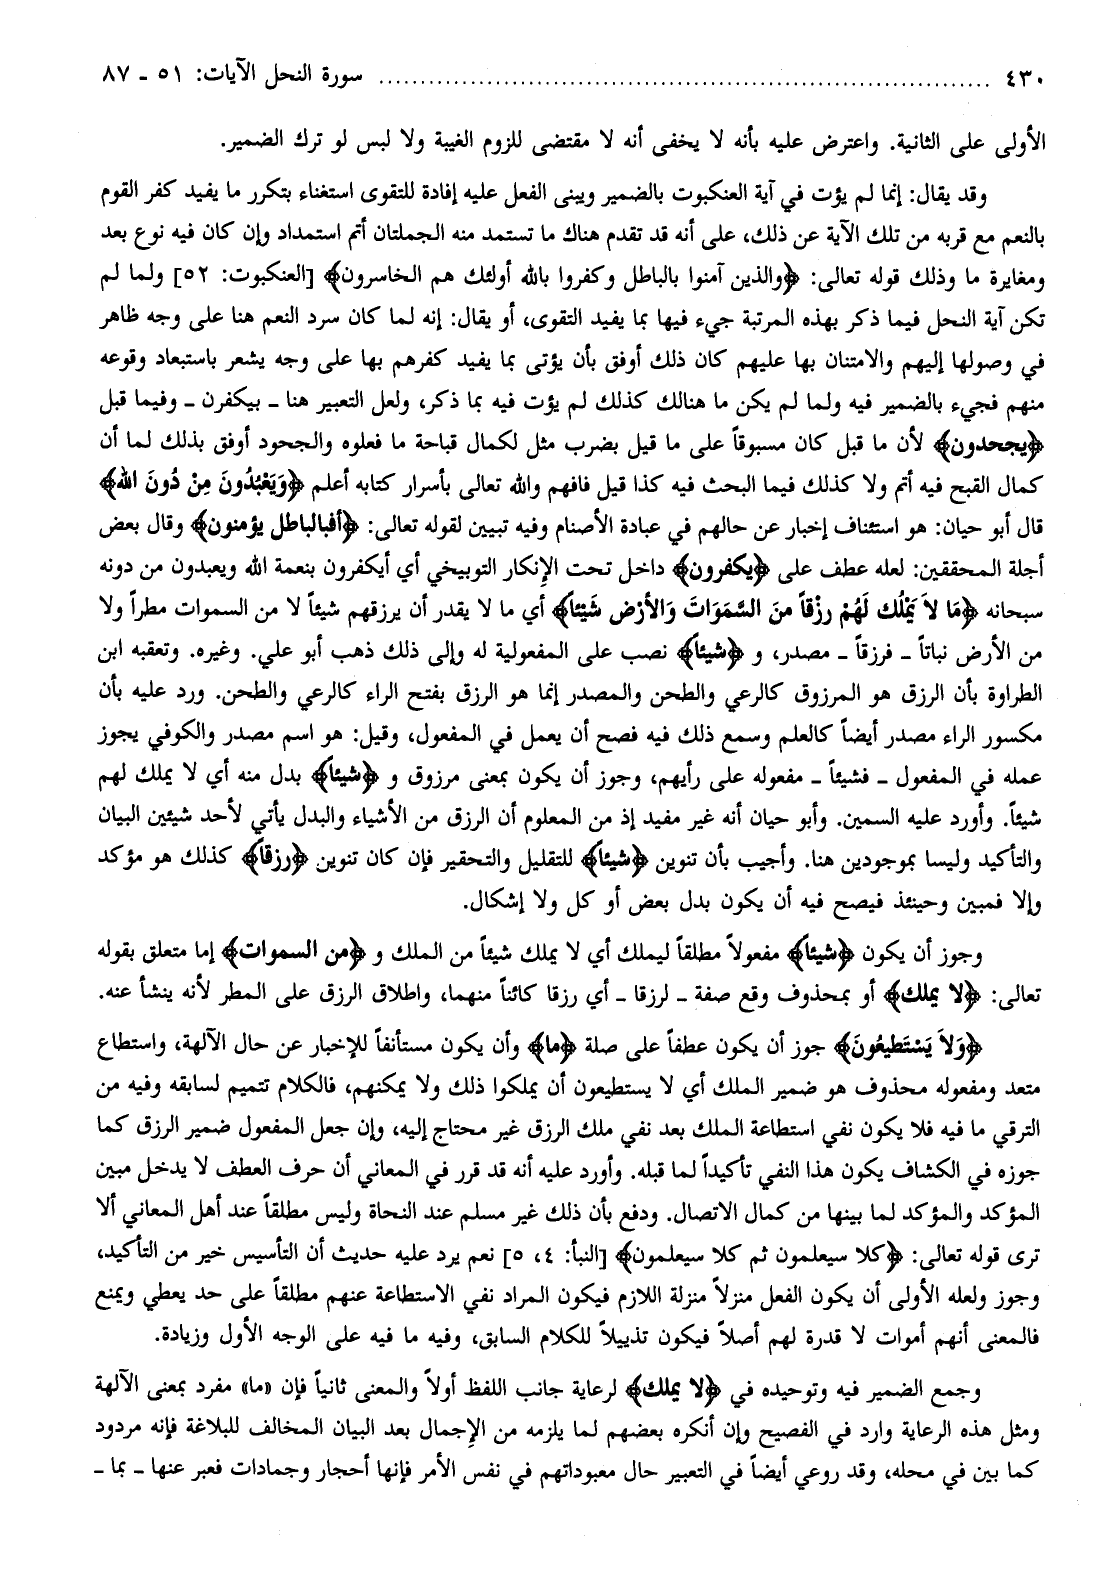 ٤٣٠ ........................................................................ سورة النحل الآيات: ٥١ ـ ٨٧
الأولى على الثانية. واعترض عليه بأنه لا يخفى أنه لا مقتضى للزوم الغيبة ولا لبس لو ترك الضمير.
وقد يقال: إنما لم يؤت في آية العنكبوت بالضمير ويبنى الفعل عليه إفادة للتقوى استغناء بتكرر ما يفيد كفر القوم
بالنعم مع قربه من تلك الآية عن ذلك، على أنه قد تقدم هناك ما تستمد منه الجملتان أتم استمداد وإن كان فيه نوع بعد
ومغايرة ما وذلك قوله تعالى: ﴿والذين آمنوا بالباطل وكفروا بالله أولئك هم الخاسرون﴾ [العنكبوت: ٥٢] ولما لم
تكن آية النحل فيما ذكر بهذه المرتبة جيء فيها بما يفيد التقوى، أو يقال: إنه لما كان سرد النعم هنا على وجه ظاهر
في وصولها إليهم والامتنان بها عليهم كان ذلك أوفق بأن يؤتى بما يفيد كفرهم بها على وجه يشعر باستبعاد وقوعه
منهم فجيء بالضمير فيه ولما لم يكن ما هنالك كذلك لم يؤت فيه بما ذكر، ولعل التعبير هنا ـ بيكفرن ـ وفيما قبل
﴿يجحدون﴾ لأن ما قبل كان مسبوقاً على ما قيل بضرب مثل لكمال قباحة ما فعلوه والجحود أوفق بذلك لما أن
كمال القبح فيه أتم ولا كذلك فيما البحث فيه كذا قيل فافهم والله تعالى بأسرار كتابه أعلم ﴿وَيَعْبُدُونَ مِنْ دُونَ الله﴾
قال أبو حيان: هو استئناف إخبار عن حالهم في عبادة الأصنام وفيه تبيين لقوله تعالى: ﴿أفبالباطل يؤمنون﴾ وقال بعض
أجلة المحققين: لعله عطف على ﴿يكفرون﴾ داخل تحت الإنكار التوبيخي أي أيكفرون بنعمة الله ويعبدون من دونه
سبحانه ﴿مَا لاَ يَمْلُك لَهُمْ رزْقاً منَ السَّمَوَات وَالأرْض شَيْئاً﴾ أي ما لا يقدر أن يرزقهم شيئاً لا من السموات مطراً ولا
من الأرض نباتاً ـ فرزقاً ـ مصدر، و ﴿شيئاً﴾ نصب على المفعولية له وإلى ذلك ذهب أبو علي. وغيره. وتعقبه ابن
الطراوة بأن الرزق هو المرزوق كالرعي والطحن والمصدر إنما هو الرزق بفتح الراء كالرعي والطحن. ورد عليه بأن
مكسور الراء مصدر أيضاً كالعلم وسمع ذلك فيه فصح أن يعمل في المفعول، وقيل: هو اسم مصدر والكوفي يجوز
عمله في المفعول ـ فشيئاً ـ مفعوله على رأيهم، وجوز أن يكون بمعنى مرزوق و ﴿شيئاً﴾ بدل منه أي لا يملك لهم
شيئاً. وأورد عليه السمين. وأبو حيان أنه غير مفيد إذ من المعلوم أن الرزق من الأشياء والبدل يأتي لأحد شيئين البيان
والتأكيد وليسا بموجودين هنا. وأجيب بأن تنوين ﴿شيئاً﴾ للتقليل والتحقير فإن كان تنوين ﴿رزقاً﴾ كذلك هو مؤكد
وإلا فمبين وحينئذ فيصح فيه أن يكون بدل بعض أو كل ولا إشكال.
وجوز أن يكون ﴿شيئاً﴾ مفعولاً مطلقاً ليملك أي لا يملك شيئاً من الملك و ﴿من السموات﴾ إما متعلق بقوله
تعالى: ﴿لا يملك﴾ أو بمحذوف وقع صفة ـ لرزقا ـ أي رزقا كائناً منهما، واطلاق الرزق على المطر لأنه ينشأ عنه.
﴿وَلاَ يَسْتَطيعُونَ﴾ جوز أن يكون عطفاً على صلة ﴿ما﴾ وأن يكون مستأنفاً للإخبار عن حال الآلهة، واستطاع
متعد ومفعوله محذوف هو ضمير الملك أي لا يستطيعون أن يملكوا ذلك ولا يمكنهم، فالكلام تتميم لسابقه وفيه من
الترقي ما فيه فلا يكون نفي استطاعة الملك بعد نفي ملك الرزق غير محتاج إليه، وإن جعل المفعول ضمير الرزق كما
جوزه في الكشاف يكون هذا النفي تأكيداً لما قبله. وأورد عليه أنه قد قرر في المعاني أن حرف العطف لا يدخل مبين
المؤكد والمؤكد لما بينها من كمال الاتصال. ودفع بأن ذلك غير مسلم عند النحاة وليس مطلقاً عند أهل المعاني ألا
ترى قوله تعالى: ﴿كلا سيعلمون ثم كلا سيعلمون﴾ [النبأ: ٤، ٥] نعم يرد عليه حديث أن التأسيس خير من التأكيد،
وجوز ولعله الأولى أن يكون الفعل منزلاً منزلة اللازم فيكون المراد نفي الاستطاعة عنهم مطلقاً على حد يعطي ويمنع
فالمعنى أنهم أموات لا قدرة لهم أصلاً فيكون تذييلاً للكلام السابق، وفيه ما فيه على الوجه الأول وزيادة.
وجمع الضمير فيه وتوحيده في ﴿لا يملك﴾ لرعاية جانب اللفظ أولاً والمعنى ثانياً فإن «ما» مفرد بمعنى الآلهة
ومثل هذه الرعاية وارد في الفصيح وإن أنكره بعضهم لما يلزمه من الإجمال بعد البيان المخالف للبلاغة فإنه مردود
كما بين في محله، وقد روعي أيضاً في التعبير حال معبوداتهم في نفس الأمر فإنها أحجار وجمادات فعبر عنها ـ بما ـ